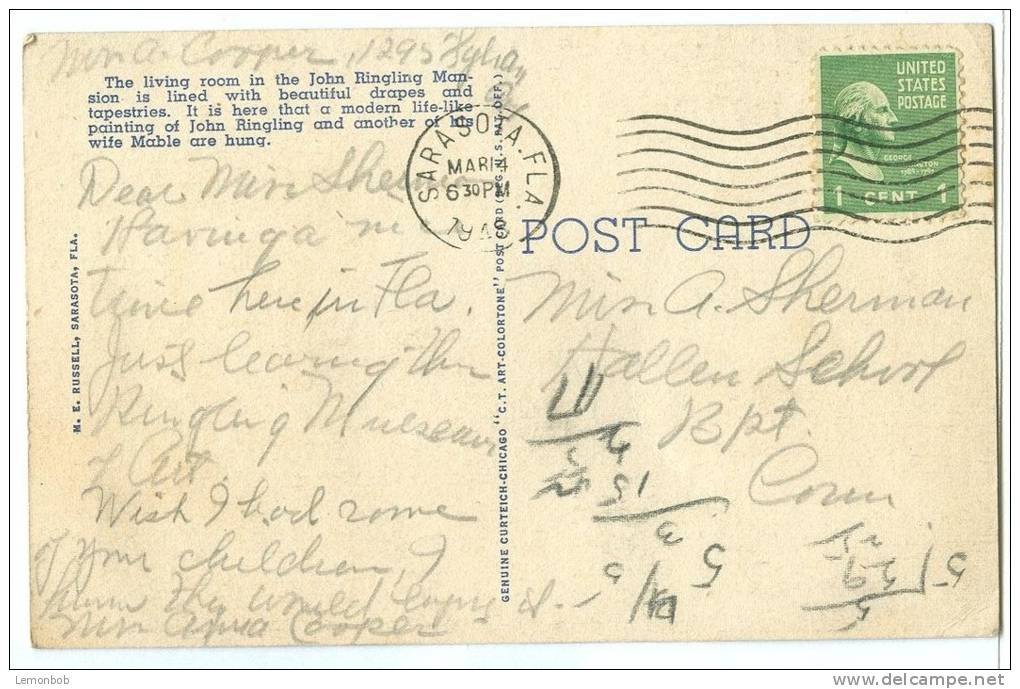 Mrs A. Cooper, 1295
The living room in the John Ringling Man-
sion is lined with beautiful drapes and
tapestries. It is here that a modern life-like
painting of John Ringling and another of his
wife Mable are hung.
SARASOTA, FLA.
MAR 14
6 30 PM
UNITED
STATES
POSTAGE
GEORGE
WASHINGTON
1 CENT 1
POST CARD
Dear Miss
Having a
time here in Fla.
Just leaving the
Ringling Museaum
of Art.
Wish I had some
of your children, I
know they would enjoy it.
Mrs Anna Cooper
Miss A. Sherman
Hallen School
Bpt.
Conn
M. E. RUSSELL, SARASOTA, FLA.
GENUINE CURTEICH-CHICAGO "C.T. ART-COLORTONE" POST CARD (REG. U.S. PAT. OFF.)
Lemonbob
www.delcampe.net